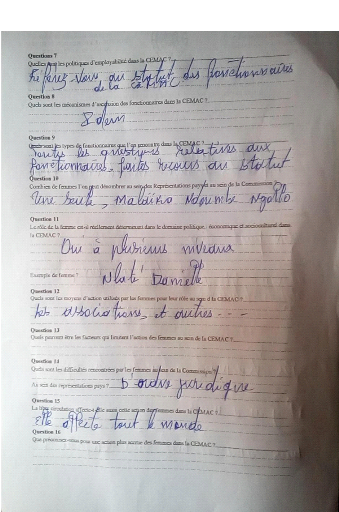 Questions 7
Quelles sont les politiques d'employabilité dans la CEMAC ?
Référez vous au statut des fonctionnaires
de la CEMAC
Question 8
Quels sont les mécanismes d' des fonctionnaires dans la CEMAC ?
Idem
Question 9
Quels sont les types de fonctionnaires que l'on rencontre dans la CEMAC ?
Toutes les questions relatives aux
fonctionnaires, faites recours au statut
Question 10
Combien de femmes l'on peut dénombrer au sein des Représentations pays au sein de la Communauté ?
Une seule, Ndoumbe Ngollo
Question 11
Le rôle de la femme est-il réellement déterminant dans le domaine politique, économique et socioculturel dans
la CEMAC ?
Oui à plusieurs niveaux
Exemple de femme ?
Nlaté Danielle
Question 12
Quels sont les moyens d'action utilisés par les femmes pour leur rôle au sein de la CEMAC ?
Les associations, et autres - - -
Question 13
Quels peuvent être les facteurs qui limitent l'action des femmes au sein de la CEMAC ?
Question 14
Quels sont les difficultés rencontrées par les femmes au sein de la Communauté ?
Au sein des représentations pays ? D'ordre juridique
Question 15
La libre circulation affecte-t-elle aussi cette action des femmes dans la CEMAC ?
elle affecte tout le monde
Question 16
Que préconisez-vous pour une action plus accrue des femmes dans la CEMAC ?